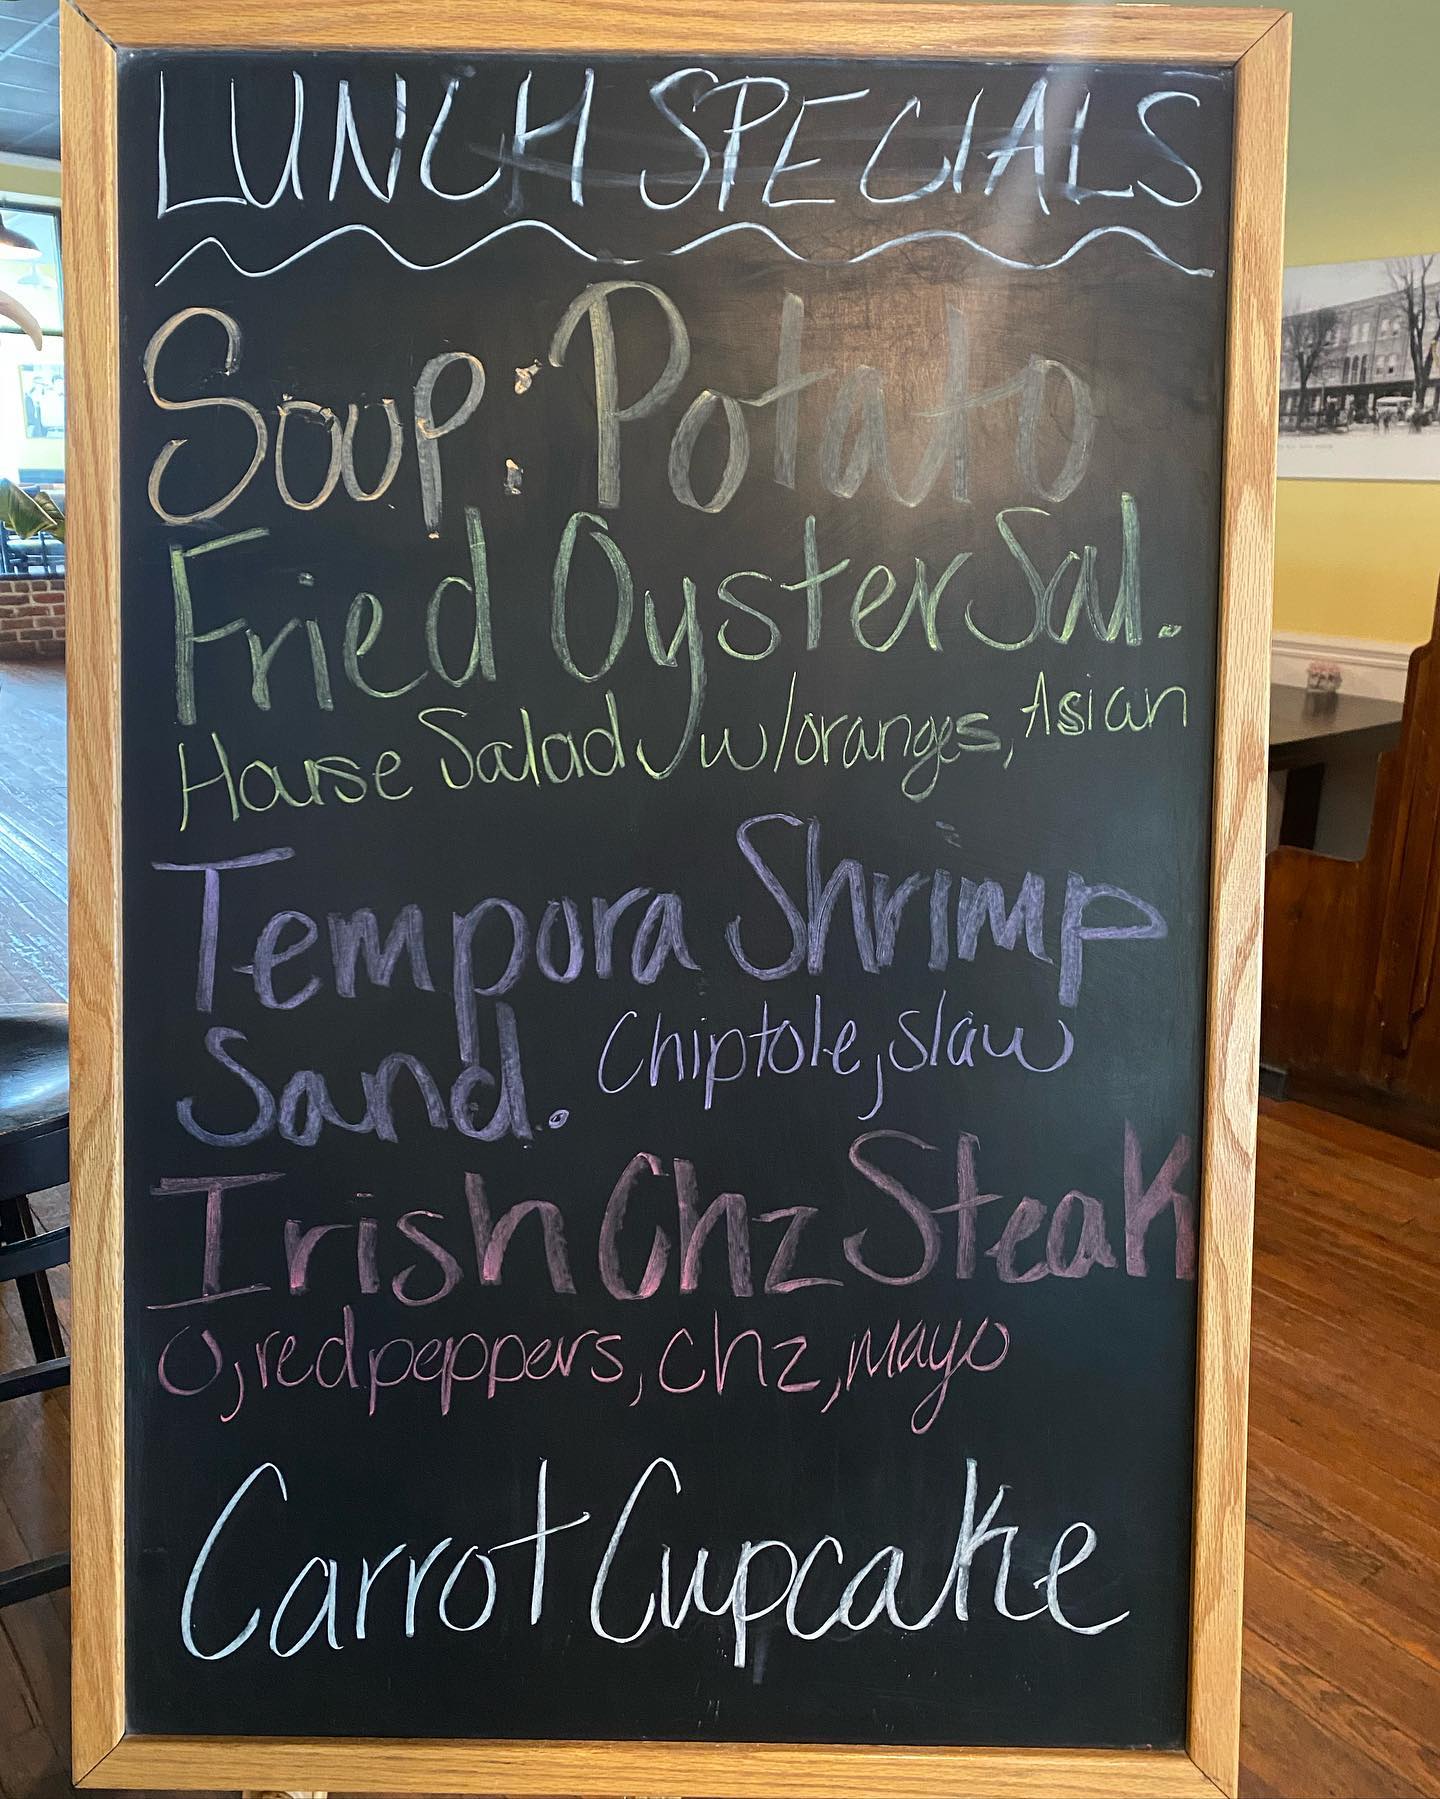 LUNCH SPECIALS
Soup: Potato
Fried Oyster Sal.
House Salad w/oranges, Asian
Tempora Shrimp
Sand. Chiptole, slaw
Irish Chz Steak
O, red peppers, chz, mayo
Carrot Cupcake